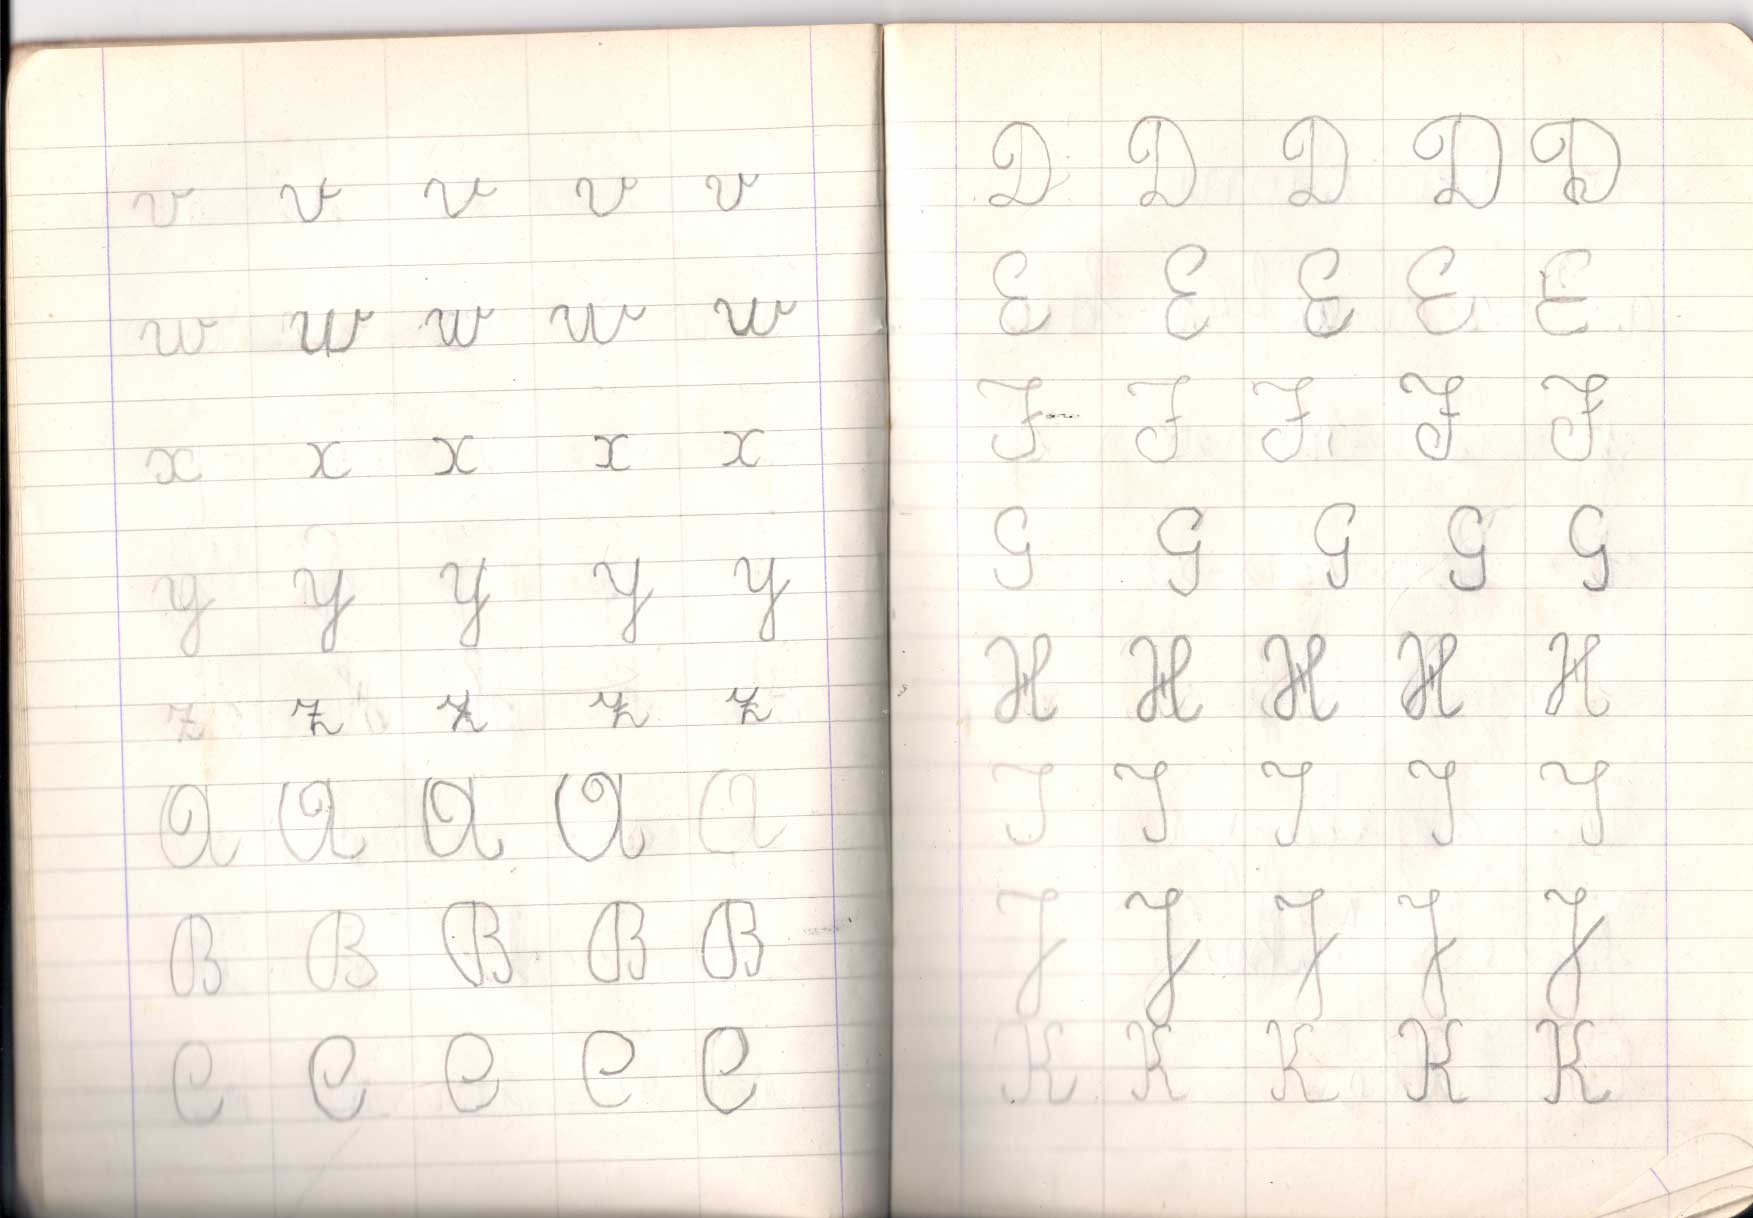 v v v v v
w w w w w
x x x x x
y y y y y
z z z z z
A A A A A
B B B B B
C C C C C
D D D D D
E E E E E
F F F F F
G G G G G
H H H H H
I I I I I
J J J J J
K K K K K